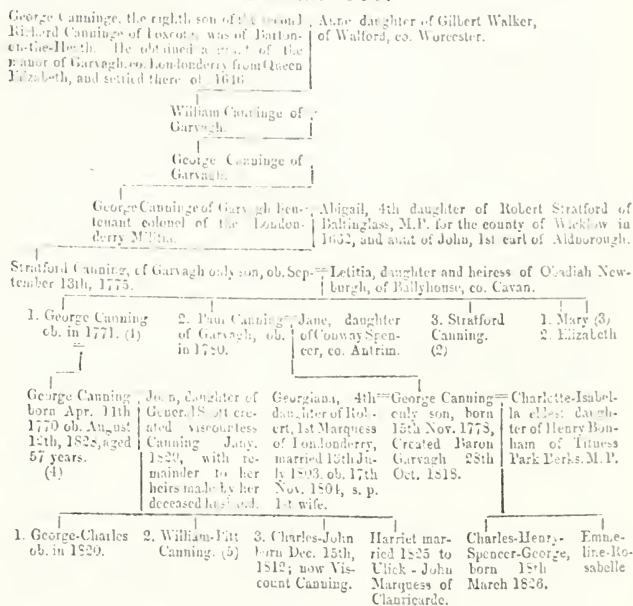 George Canninge, the eighth son of the second
Richard Canninge of Foxcote, was of Barton-
on-the-Heath. He obtained a grant of the
manor of Garvagh, co. Londonderry from Queen
Elizabeth, and settled there of 1616
Anne daughter of Gilbert Walker,
of Walford, co. Worcester.
William Canninge of
Garvagh.
George Canninge of
Garvagh.
George Canninge of Garvagh lieu-
tenant colonel of the London-
derry Militia.
Abigail, 4th daughter of Robert Stratford of
Baltinglass, M.P. for the county of Wicklow in
1662, and aunt of John, 1st earl of Aldborough.
Stratford Canning, of Garvagh only son, ob. Sep-
tember 13th, 1775.
Letitia, daughter and heiress of Obadiah New-
burgh, of Ballyhouse, co. Cavan.
1. George Canning
ob. in 1771. (4)
2. Paul Canning
of Garvagh, ob.
in 1780.
Jane, daughter
of Conway Spen-
cer, co. Antrim.
3. Stratford
Canning.
(2)
1. Mary (3)
2. Elizabeth
George Canning
born Apr. 11th
1770 ob. August
12th, 1828, aged
57 years.
(4)
Joan, daughter of
General Scott cre-
ated viscountess
Canning Jany.
1829, with re-
mainder to her
heirs made by her
deceased husband.
Georgiana, 4th
daughter of Rob-
ert, 1st Marquess
of Londonderry,
married 13th Ju-
ly 1803. ob. 17th
Nov. 1804, s. p.
1st wife.
George Canning
only son, born
15th Nov. 1778,
Created Baron
Garvagh 28th
Oct. 1818.
Charlotte-Isabel-
la eldest daugh-
ter of Henry Bon-
ham of Titness
Park Berks. M.P.
1. George-Charles
ob. in 1820.
2. William-Pitt
Canning. (5)
3. Charles-John
born Dec. 15th,
1812; now Vis-
count Canning.
Harriet mar-
ried 1825 to
Ulick-John
Marquess of
Clanricarde.
Charles-Henry-
Spencer-George,
born 18th
March 1826.
Emme-
line-Ro-
sabelle